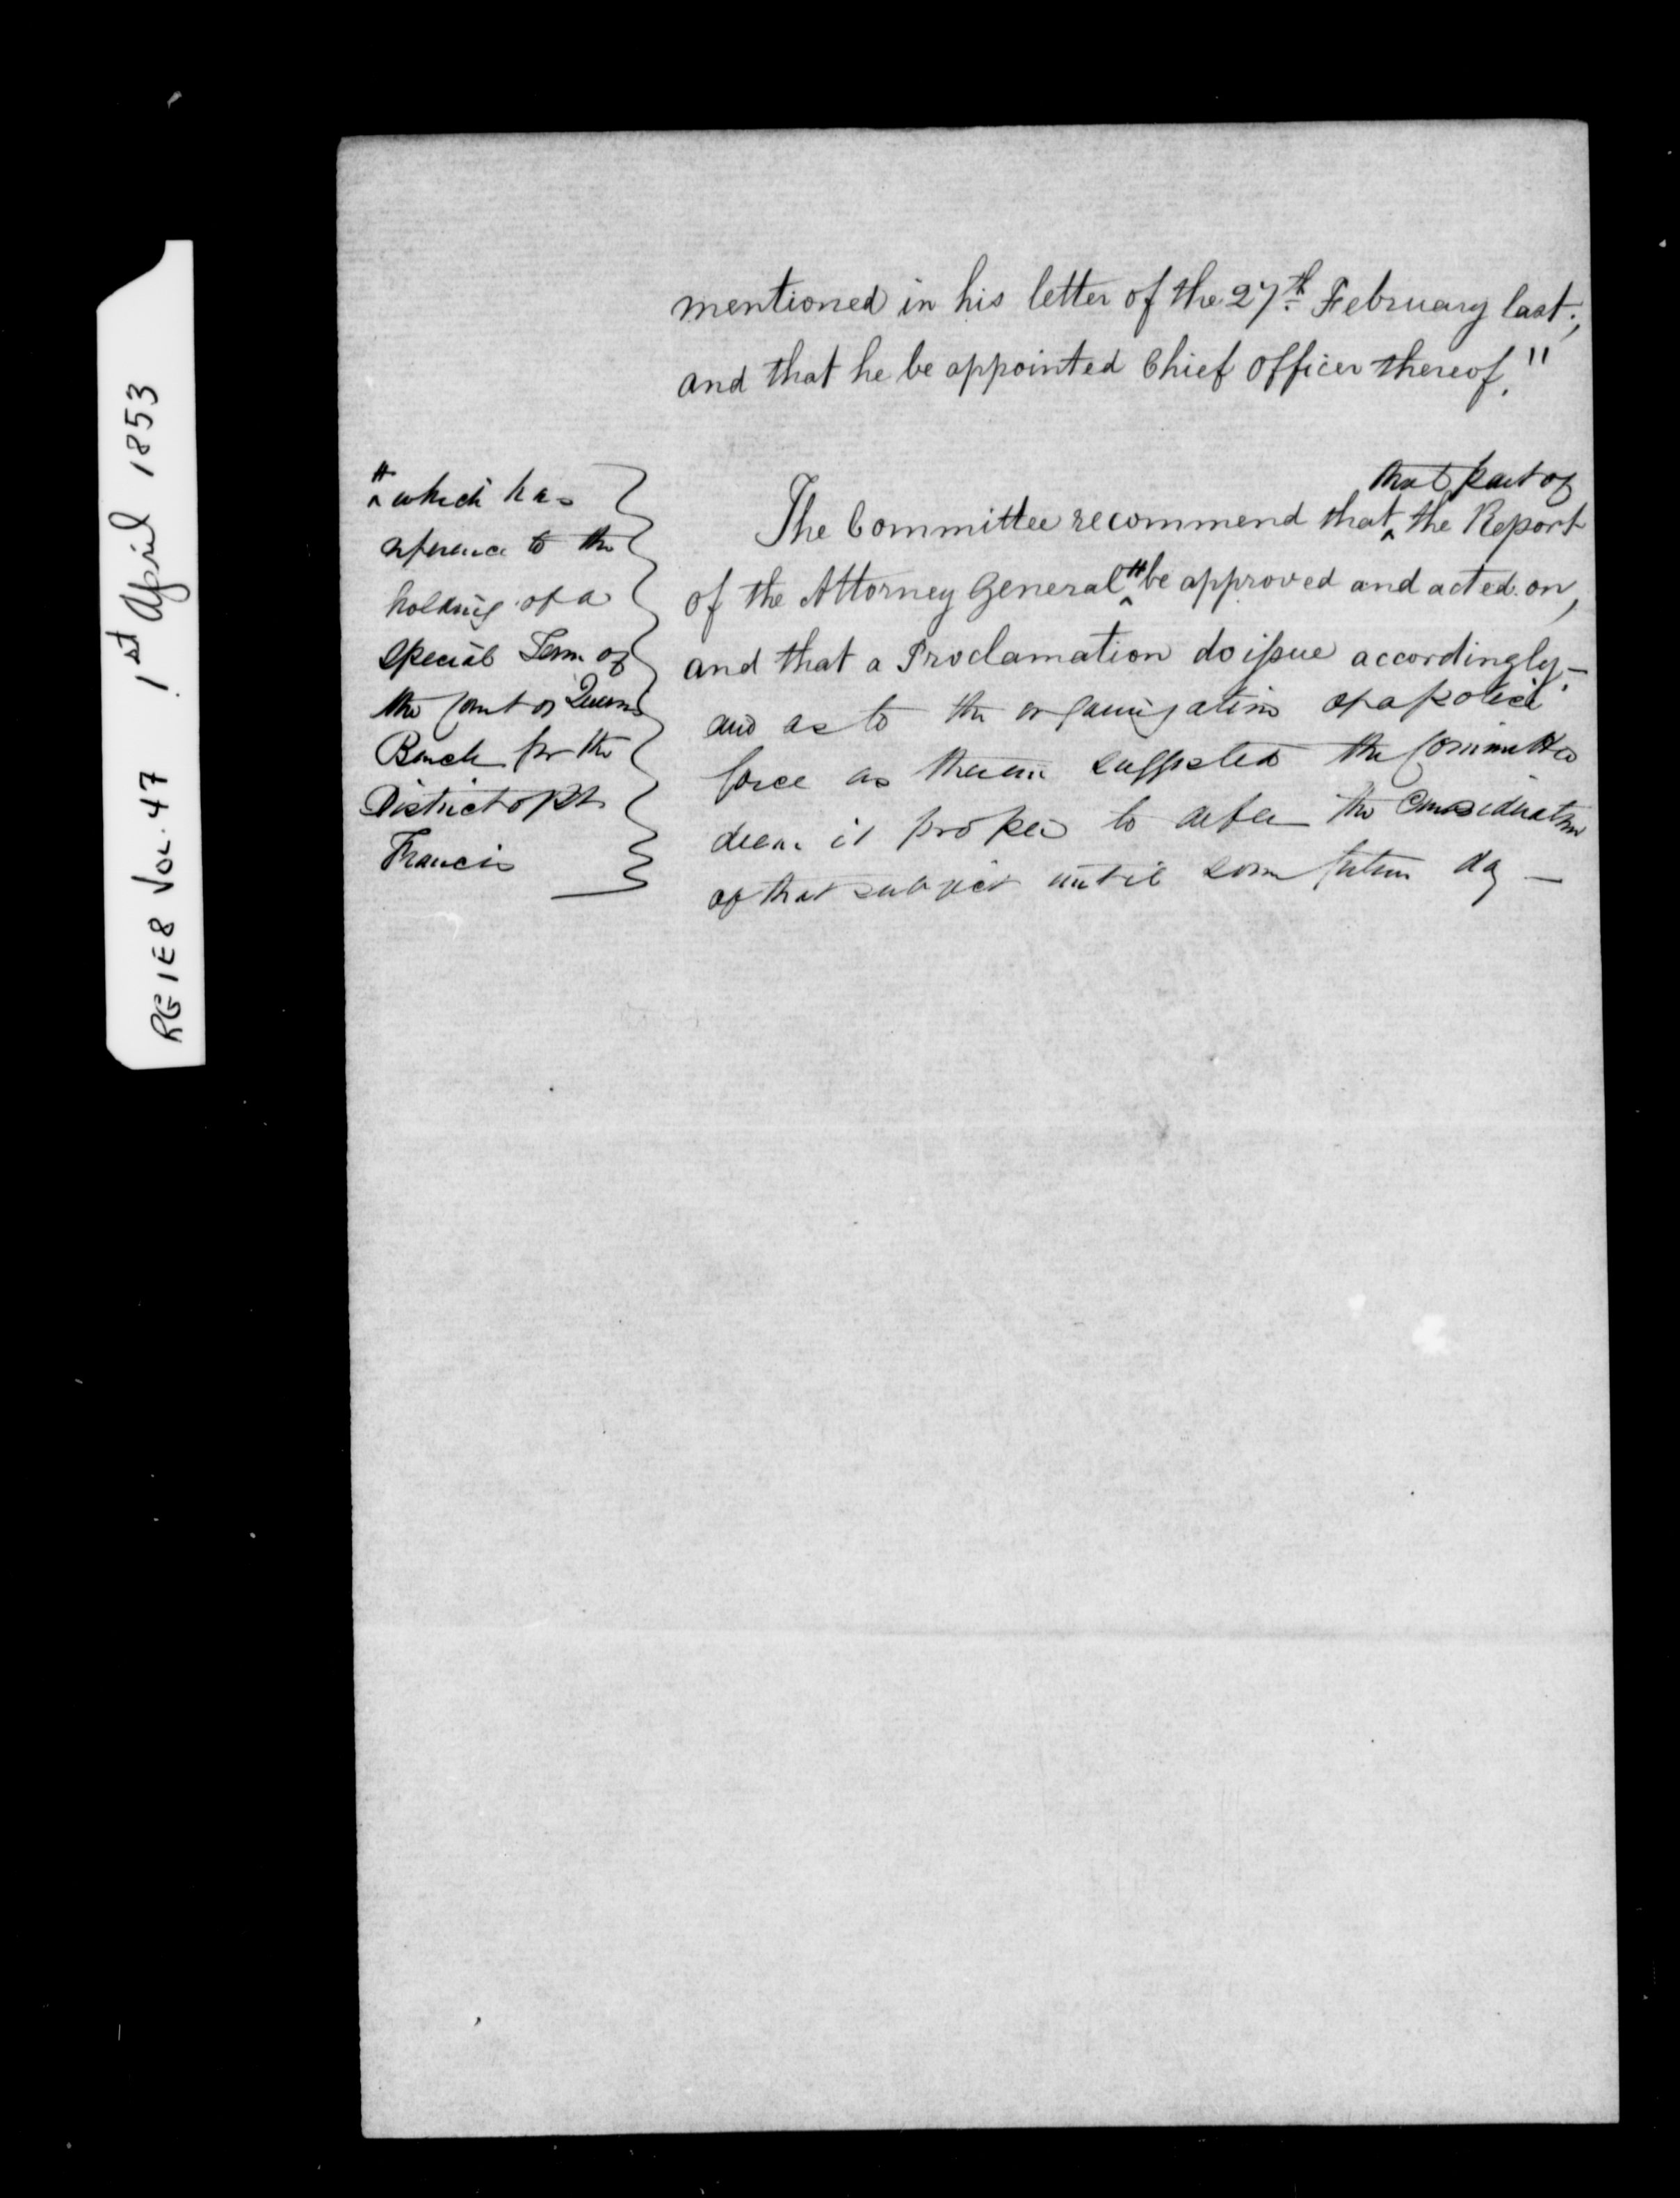 RG 1 E8 Vol. 47 1st April 1853
mentioned in his letter of the 27th February last;
and that he be appointed Chief Officer thereof."
that part of
The Committee recommend that ‸ the Report
of the Attorney General ‸# be approved and acted on,
and that a Proclamation do issue accordingly.—
and as to the organization of a police
force as therein suggested the Committee
deem it proper to defer the Consideration
of that subject until some future day —
# ‸ which has
reference to the
holding of a
special Term of
the Court of Queens
Bench for the
District of St
Francis